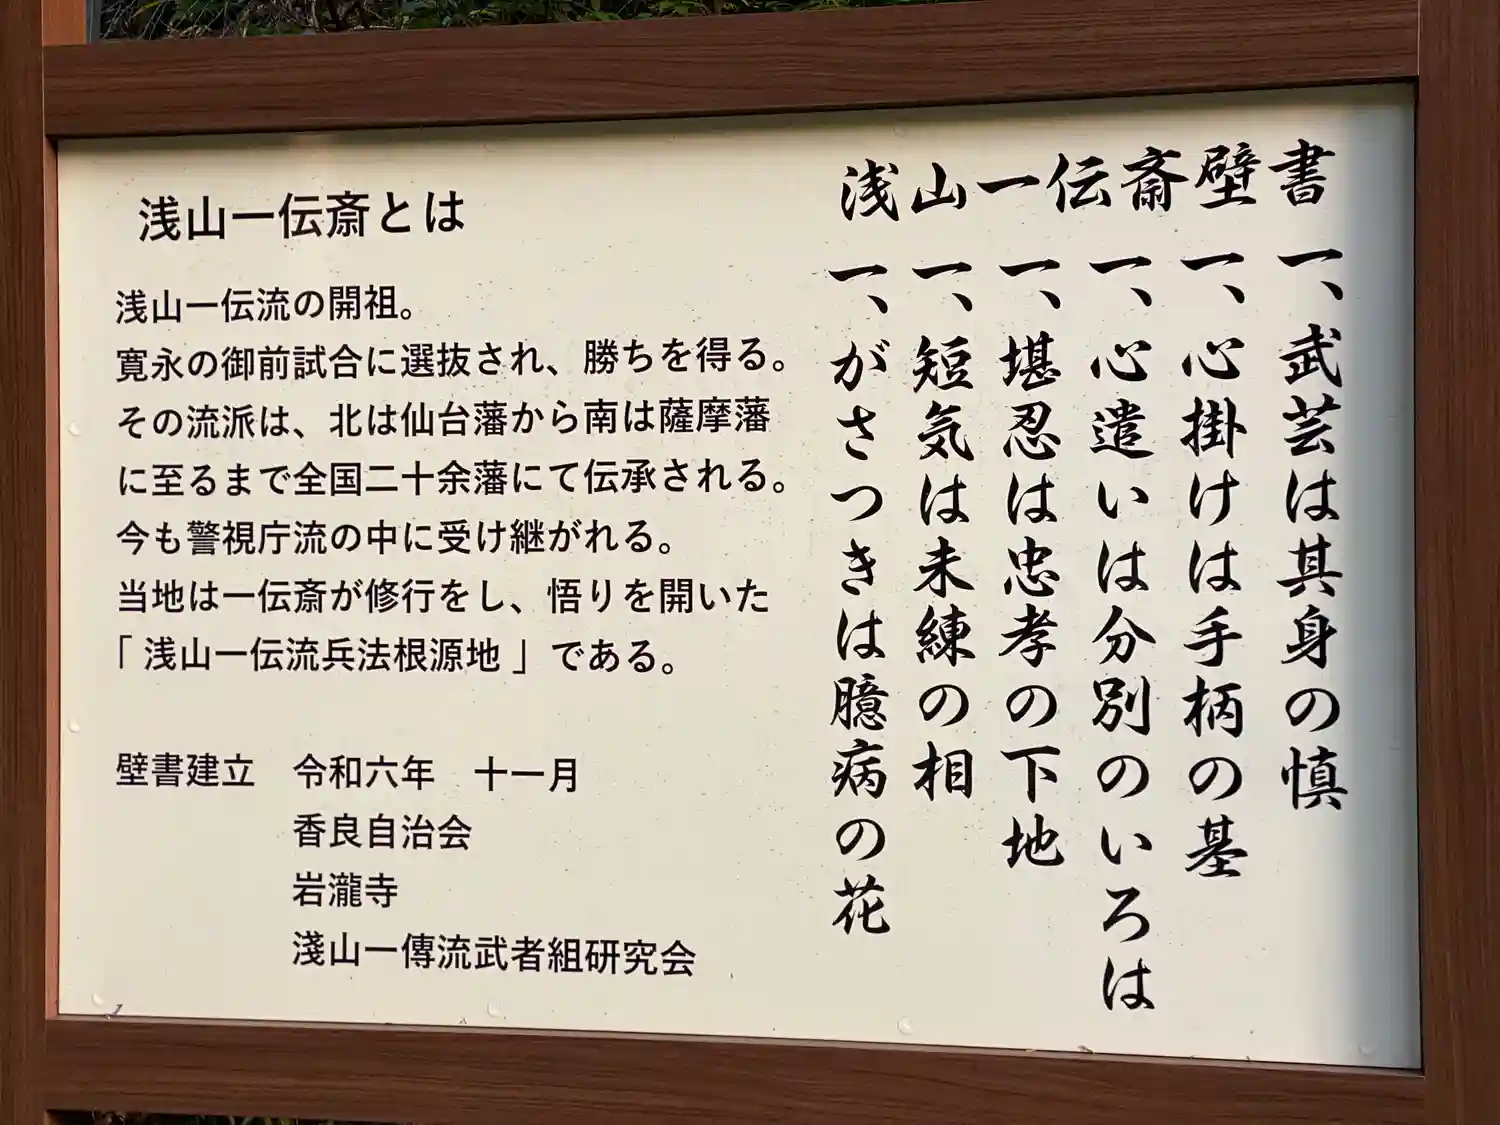 浅山一伝斎壁書
一、武芸は其身の慎
一、心掛けは手柄の基
一、心遣いは分別のいろは
一、堪忍は忠孝の下地
一、短気は未練の相
一、がさつきは臆病の花
浅山一伝斎とは
浅山一伝流の開祖。
寛永の御前試合に選抜され、勝ちを得る。
その流派は、北は仙台藩から南は薩摩藩
に至るまで全国二十余藩にて伝承される。
今も警視庁流の中に受け継がれる。
当地は一伝斎が修行をし、悟りを開いた
「浅山一伝流兵法根源地」である。
壁書建立　令和六年　十一月
香良自治会
岩瀧寺
淺山一傳流武者組研究会